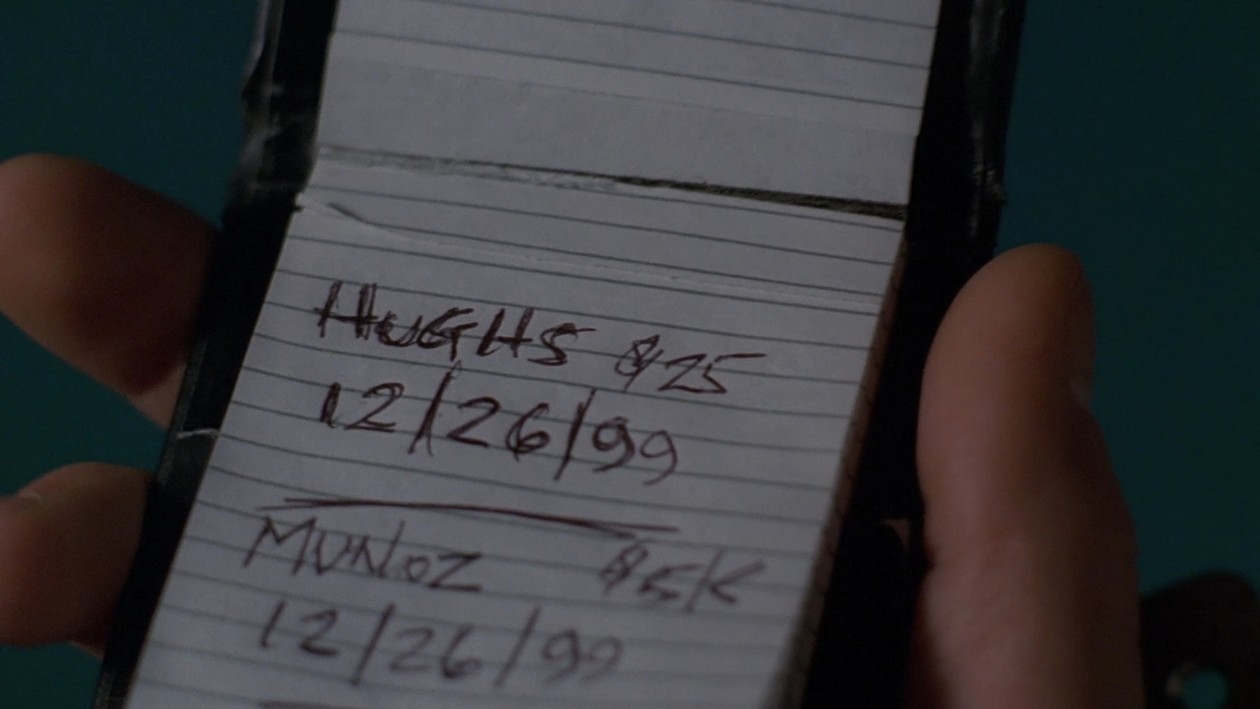 HUGHS $25
12/26/99
MUNOZ $5K
12/26/99